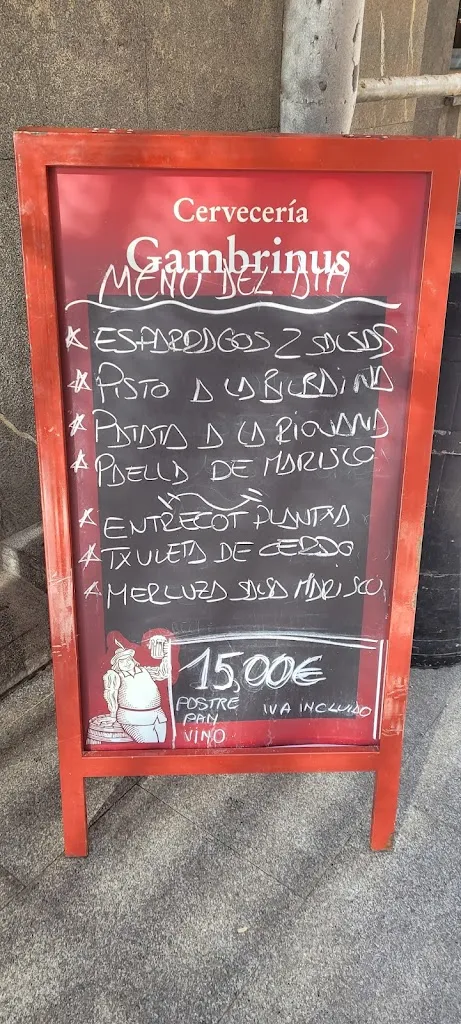 Cervecería
Gambrinus
MENÚ DEL DIA
ESPARRAGOS 2 SALSAS
PISTO A LA BILBAINA
PATATA A LA RIOJANA
PAELLA DE MARISCO
ENTRECOT PLANTXA
TXULETA DE CERDO
MERLUZA SALSA MARISCO
15,00€
POSTRE IVA INCLUIDO
PAN
VINO